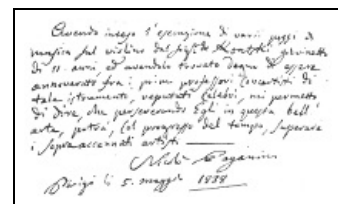 Avendo inteso l'esecuzione di varii pezzi di
musica sul violino dal sig.r de Kontski, giovinetto
di 11. anni ed avendolo trovato degno di essere
annoverato fra i primi professori concertisti di
tale istrumento, reputati celebri, mi permetto
di dire, che perseverando Egli in questa bell'
arte, potrà, col progresso del tempo, superare
i sopraaccennati artisti
Nicolò Paganini
Parigi li 5. maggio 1838